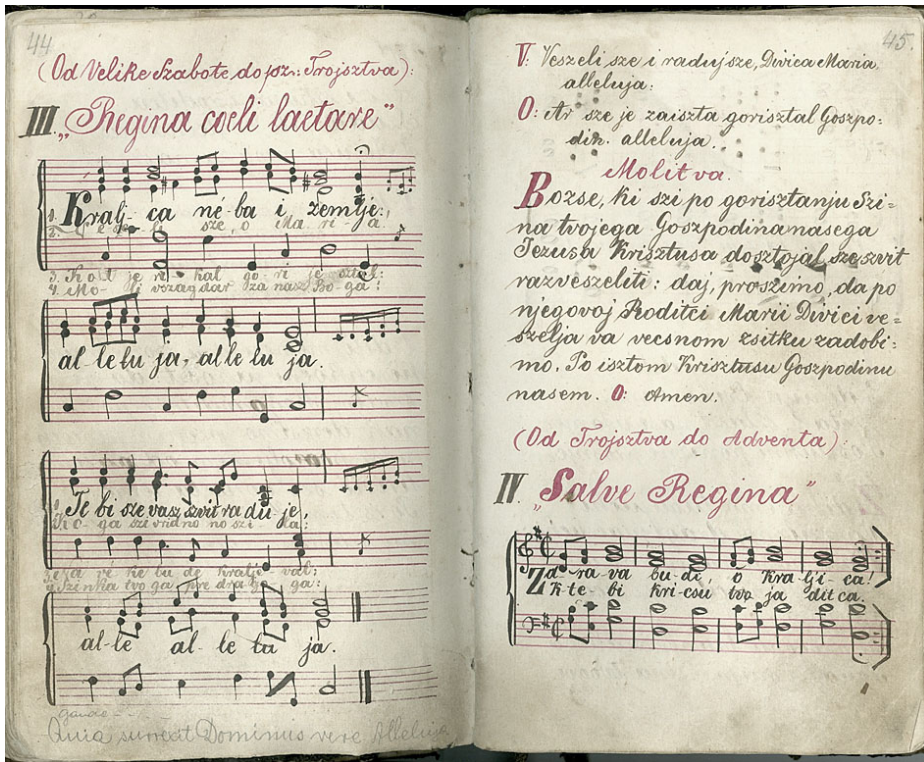 44
(Od Velike Szabote do pr: Trojsztva):
III. "Regina coeli laetare"
1. Kralj-ca né-ba i zemlje:,
sze, o Ma-ri-a.
al-le lu ja, al le lu ja.
Te bi sze vasz szvit ra du-je,
al-le al-le lu ja.
Gaude
Quia surrexit Dominus vere Alleluja
45
V: Veszeli sze i radujsze, Divica Maria,
alleluja:
O: Ar sze je zaiszta gorisztal Goszpo:
din. alleluja.
Molitva.
Bozse, ki szi po gorisztanju Szi-
na tvojega Goszpodina nasega
Jezusa Krisztusa dosztojal sze szvit
razveszeliti: daj, proszimo, da po
njegovoj Roditci Marii Divici ve-
szelja va vecsnom zsitku zadobi:
mo. Po isztom Krisztusu Goszpodinu
nasem. O: Amen.
(Od Trojsztva do Adventa):
IV. "Salve Regina"
Zd-ra-va bu-di, o Kra-lji-ca!
K-te-bi kri-csu tvo ja ditca.